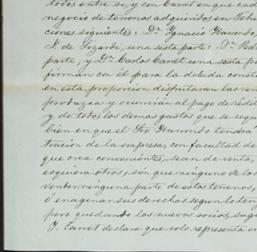 todos entre sí, y con Carret en que cad
negocio de terrenos adquiridos en
ciones siguientes: Dn Ignacio
S. de Lizardi, una sista parte: Dn
parte, y Dn Carlos Carret una sesta pa
firman en él para la debida const
en esta proporcion disfrutarán las ven
produzca y ocurrirán al pago de rédit
y de todos los demas gastos que se requi
bien en que el Sor tendrá
tracion de la empresa, con facultad de
que crea convenientes, sean de renta,
esquiera otros, sin que ninguno de los
vender ninguna parte de estos terrenos,
ó enagenar sus derechos segun lo teng
pero quedando los nuevos socios, suge
J. Carret declara que solo representa en